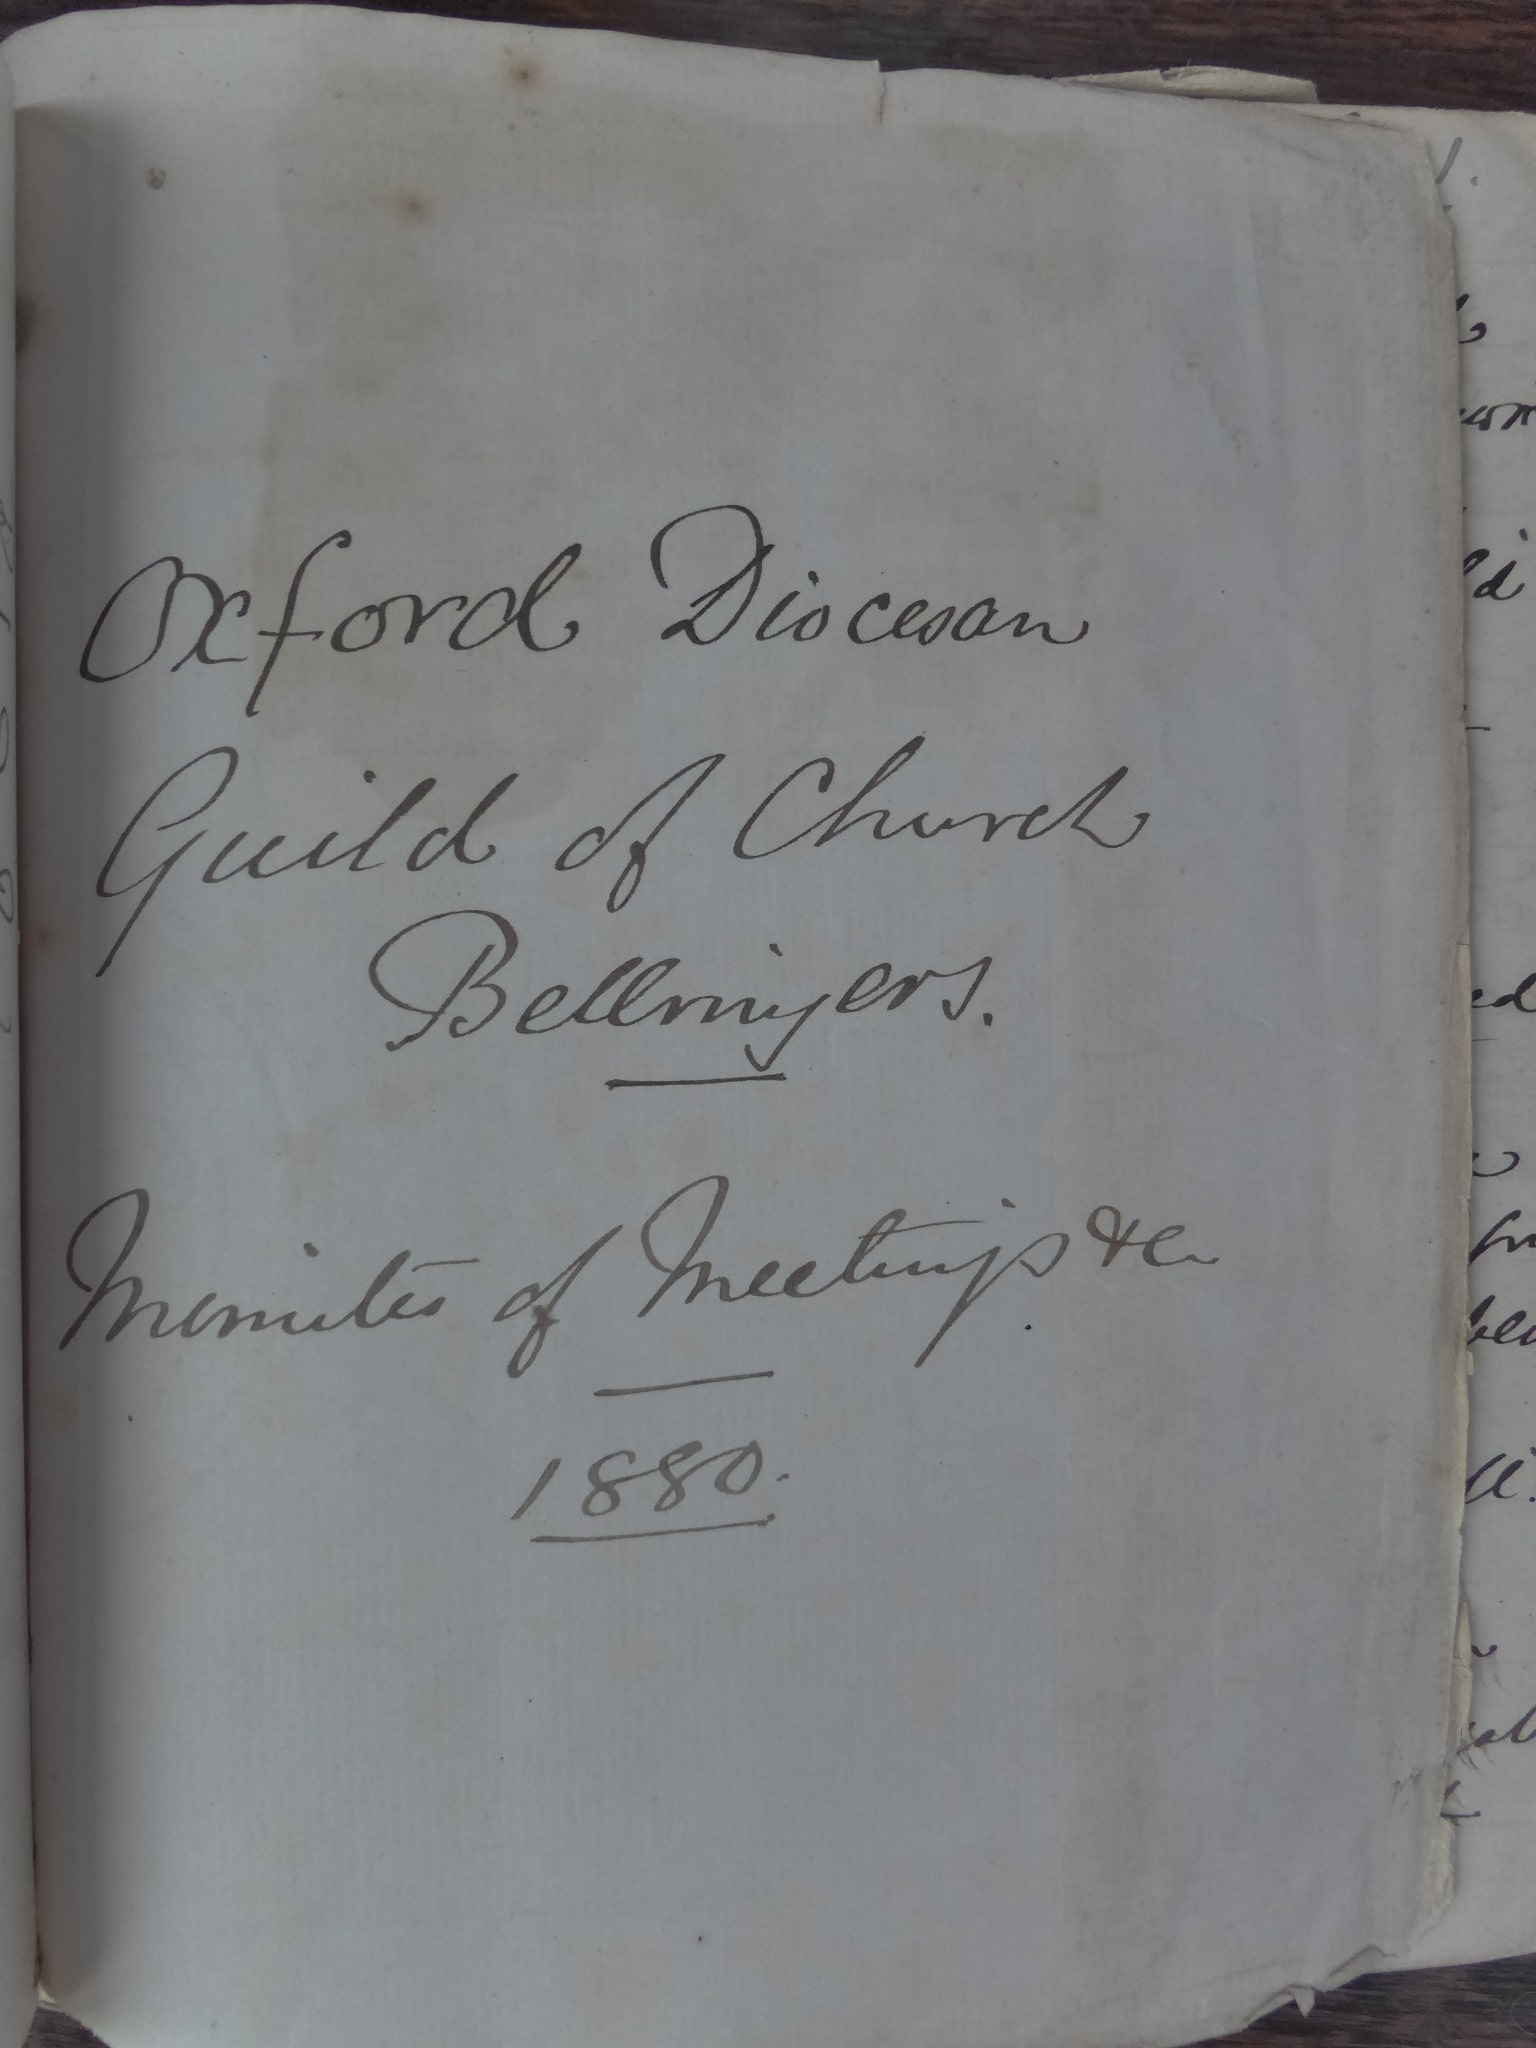 Oxford Diocesan
Guild of Church
Bellringers.
Minutes of Meetings &c.
1880.